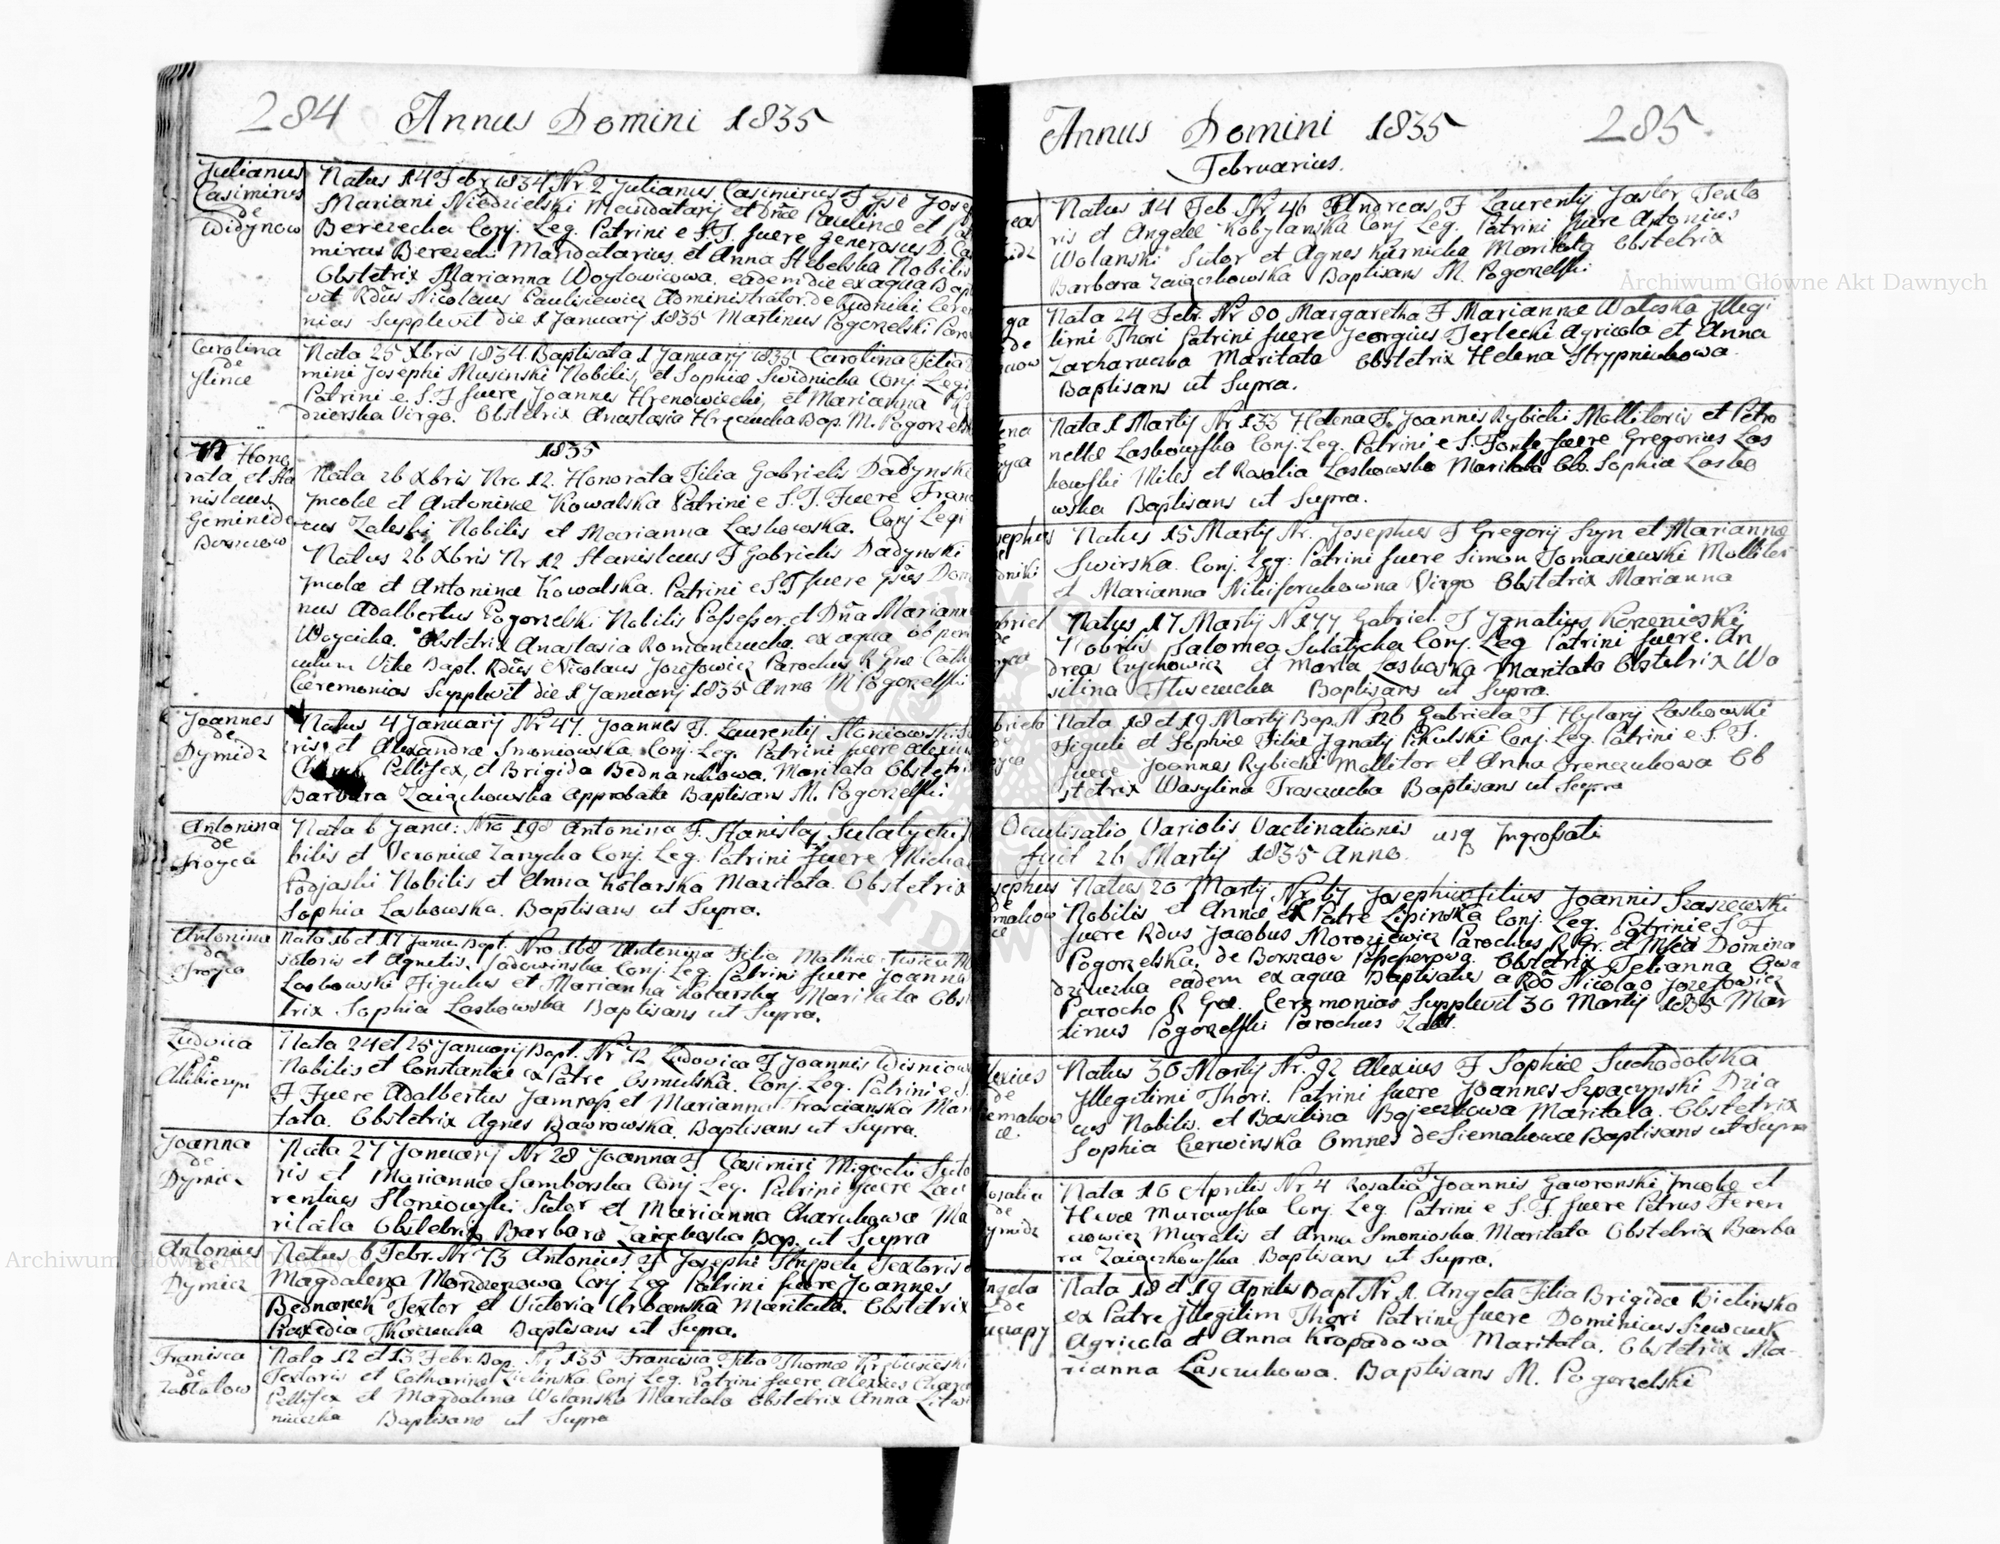 284 Annus Domini 1835
Julianus
Casimirus
de
Widynow
Natus 14 Febr 1834 Nr 2 Julianus Casimirus F
Mariani Niedzielski Mandatarij et Dnæ Paulinæ et
Berezecka Conj. Leg. Patrini e S.F. fuere Generosus D. Ca
mirus Berezecki Mandatarius, et Anna Stebelska Nobilis
Obstetrix Marianna Woytowiczowa, eadem die ex aqua Bap
vit Rdus Nicolaus Paulisiewicz Administrator de Rudniki Cere
nias Supplevit die 1 January 1835 Martinus Pogorzelski Paro
Carolina
de
Ilince
Nata 25 Xbris 1834 Baptisata 1 January 1835 Carolina Filia
mini Josephi Musinski Nobilis, et Sophiæ Swidnicka Conj. Legi
Patrini e S.F fuere Joannes Hrenowiecki, et Marianna
dzierska Virgo. Obstetrix Anastasia Bap. M. Pogorzelski
Hono
rata, et Sta
nislaus
Gemini de
Borszczow
1835
Nata 26 Xbris Nro 12. Honorata Filia Gabrielis Dadynski
Incolæ et Antoninæ Kowalska Patrini e S.F. Fuere Fran
cus Zaleski Nobilis et Marianna Laskowska. Conj Legi
Natus 26 Xbris Nr 12 Stanislaus F Gabrielis Dadynski
Incolæ et Antonina Kowalska. Patrini e S.F fuere Gsus Dom
nus Adalbertus Pogorzelski Nobilis Possessor et Dna Marianna
Woycicka. Obstetrix Anastasia Romanczucka ex aqua ob peri
culum Vitæ Bapt. Rdus Nicolaus Jozefowicz Parochus R Græ Cath
Ceremonias Supplevit die 1 January 1835 Anno M Pogorzelski
Joannes
de
Dymidz
Natus 4 January Nr 47. Joannes F. Laurentij Sloniowski
ris et Alexandræ Smoniowska Conj. Leg. Patrini fuere Alexius
Pellifex, et Brigida Bednarukowa. Maritata Obstetri
Barbara Zaiączkowska approbata Baptisans M. Pogorzelski
Antonina
de
Troyca
Nata 6 Janu: Nro 198 Antonina F. Stanislaj Sulatycki
bilis et Veronicæ Zarycka Conj. Leg. Patrini fuere Michae
Podjaski Nobilis et Anna Kolarska Maritata. Obstetrix
Sophia Laskowska. Baptisans ut Supra.
Antonina
de
Troyca
Nata 16 et 17 Janu. Bapt. Nro. 168 Antonina Filia Mathiæ
sitoris et Agnetis. Sadowinska Conj. Leg. Patrini fuere Joannes
Laskowski Figulus et Marianna Kolarska Maritata Obst
trix Sophia Laskowska Baptisans ut Supra.
Ludovica
de
Chlibiczyn
Nata 24 et 25 January Bapt. Nr 72 Ludovica F Joannis Wisniow
Nobilis et Constantiæ ex Patre Osmulska. Conj. Leg. Patrini e S.
F Fuere Adalbertus et Marianna Trościanska Mari
tata. Obstetrix Agnes Bawrowska. Baptisans ut Supra.
Joanna
de
Dymicz
Nata 27 January Nr 28 Joanna F Casimiri Migocki Suto
ris et Mariannæ Samborska Conj. Leg. Patrini fuere Lau
rentius Sloniowski Sutor et Marianna Charukowa Ma
ritata Obstetrix Barbara Zaiączkowska Bap. ut Supra
Antonius
de
Dymicz
Natus 6 Febr. Nr 73 Antonius F Josephi Textoris
Magdalena Conj Leg Patrini fuere Joannes
Bednarek Textor et Victoria Urbanska Maritata. Obstetrix
Praxedia Baptisans ut Supra.
Francisca
de
Zabłatow
Nata 12 et 13 Febr. Bap. Nr 135 Francisca Filia Thomæ
Textoris et Catharinæ Zielinska Conj Leg. Patrini fuere Alexius
Pellifex et Magdalena Wolanska Maritata Obstetrix Anna Litwi
niuczka Baptisans ut Supra
Annus Domini 1835 285
Februarius.
Natus 14 Feb Nr 46 Andreas F Laurentij Jasler Texto
ris et Angelæ Kobylanska Conj Leg. Patrini fuere Antonius
Wolanski Sutor et Agnes Karnicka Maritata Obstetrix
Barbara Zaiączkowska Baptisans M. Pogorzelski
Nata 24 Febr. Nr 80 Margaretha F Mariannæ Waleska Illegi
timi Thori Patrini fuere Georgius Terlecki Agricola et Anna
Zacharuczka Maritata Obstetrix Helena Skrypniukowa.
Baptisans ut Supra.
Nata 1 Martij Nr 133 Helena F. Joannis Rybicki Mollitoris et Petro
nellæ Laskowska Conj. Leg. Patrini e S. Fonte fuere Gregorius Las
kowski Miles et Rosalia Laskowska Maritata Ob. Sophia Lasko
wska Baptisans ut Supra.
Natus 15 Martij Nr. Josephus F Gregorij Szyn et Mariannæ
Swirska. Conj. Leg. Patrini fuere Simon Tomaszewski Mollitor
et Marianna Nikiforukowna Virgo Obstetrix Marianna
Natus 17 Martij N 177 Gabriel F Ignatius Korzenioski
Nobilis Salomea Sulatycka Conj. Leg Patrini fuere. An
dreas Crychowicz et Maria Laskoska Maritata Obstetrix Wa
silina Baptisans ut Supra.
Nata 18 et 19 Martij Bap. N 126 Gabriela F Hylarij Laskowski
Figuli et Sophiæ Filiæ Ignatij Pikulski Conj. Leg. Patrini e S. F.
fuere Joannes Rybicki Mollitor et Anna Ob
stetrix Wasylina Baptisans ut Supra
Occulisatio Variolis Vactinationis usq Ingrossati
fuit 26 Martij 1835 Anno.
Natus 20 Martij Nr 67 Josephus Filius Joannis Staszewski
Nobilis et Annæ ex Patre Lipinska Conj. Leg. Patrini e S F
fuere Rdus Jacobus Moroziewicz Parochus R. Gr. et Mfca Domina
Pogorzelska, de Borszow Obstetrix Telianna
eadem ex aqua Baptisatus a Rdo Nicolao Jozefowicz
Parocho R Græ. Ceremonias Supplevit 30 Martij 1835 Mar
tinus Pogorzelski Parochus Zabl.
Natus 30 Martij Nr. 92 Alexius F Sophiæ Suchodolska
Illegitimi Thori. Patrini fuere Joannes Szpaczynski Dzia
cus Nobilis. et Basilina Maritata. Obstetrix
Sophia Czerwinska Omnes de Siemakowce Baptisans ut Supra
Nata 16 Aprilis Nr 4 Rosalia F Joannis Gawronski Incolæ et
Hevæ Murawska Conj Leg Patrini e S. F. fuere Petrus Feren
cowicz Muralis et Anna Smonioska. Maritata Obstetrix Barba
ra Zaiączkowska Baptisans ut Supra.
Nata 18 et 19 Aprilis Bapt Nr 1. Angela Filia Brigida Bielinska
ex Patre Illegitim Thori Patrini fuere Dominicus Szewczuk
Agricola et Anna Kropadowa Maritata. Obstetrix Ma
rianna Lasczukowa. Baptisans M. Pogorzelski
Archiwum Główne Akt Dawnych
Archiwum Główne Akt Dawnych